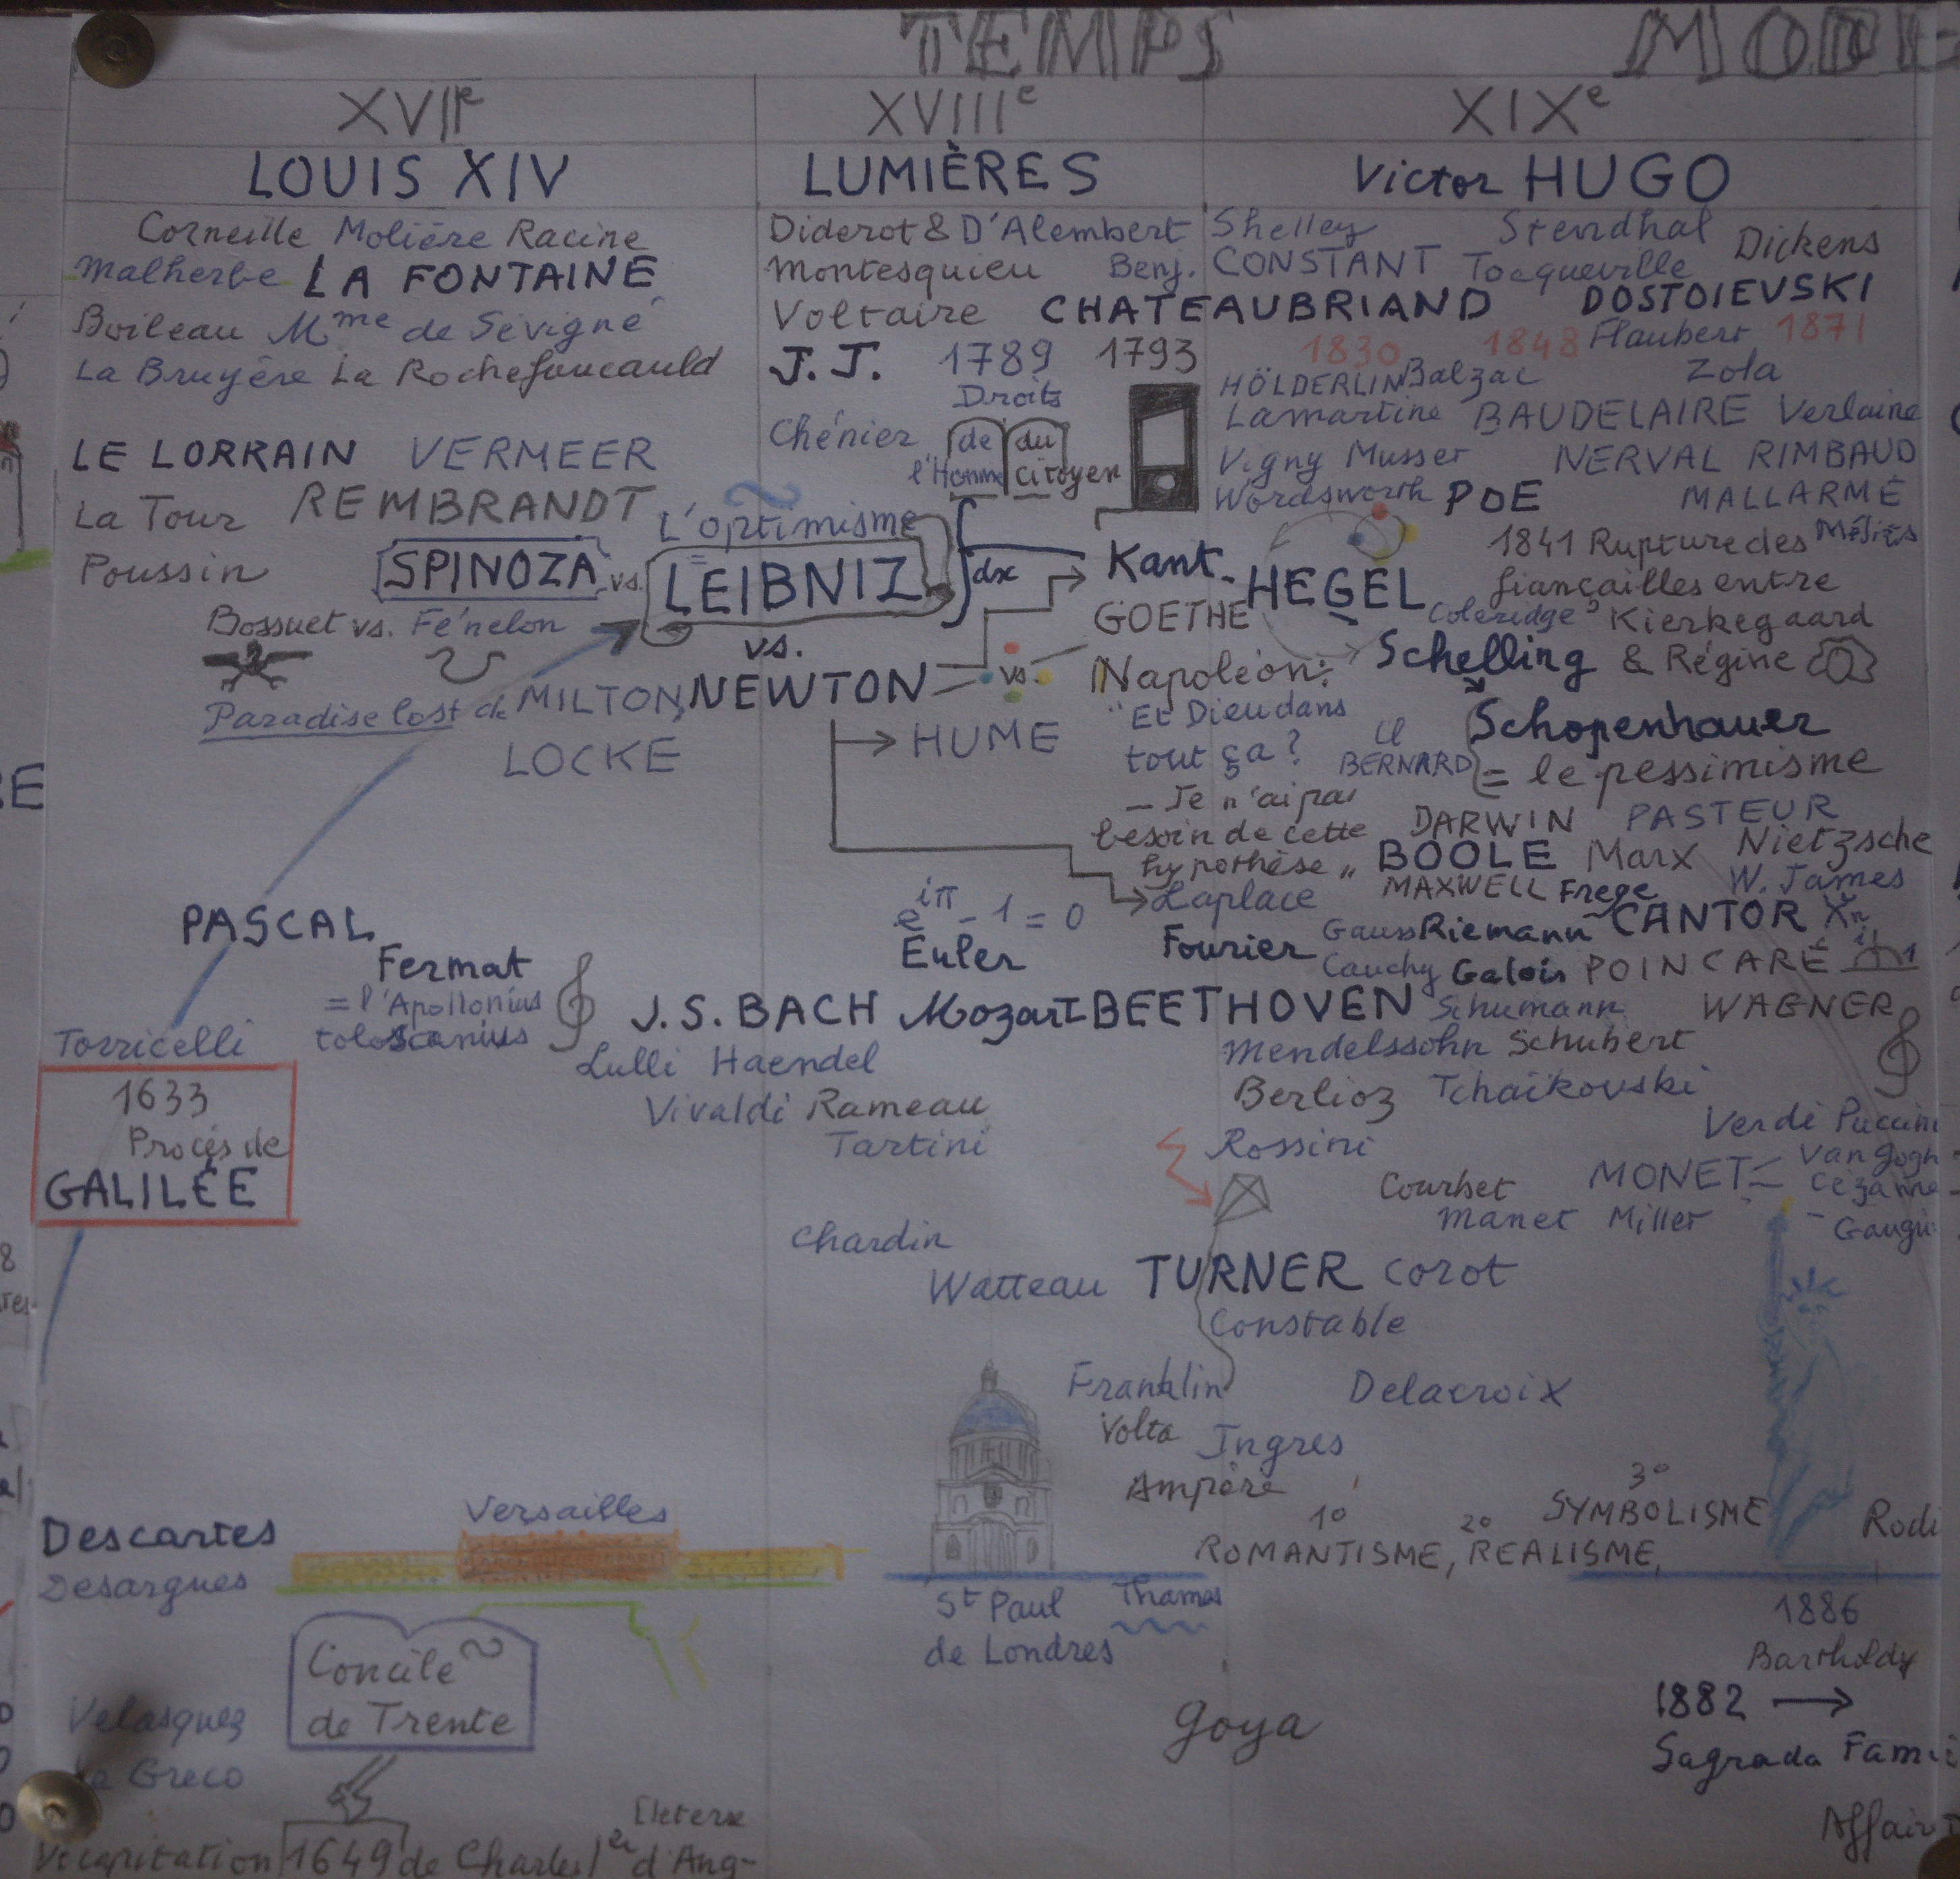 TEMPS MODE
XVIIe XVIIIe XIXe
LOUIS XIV LUMIÈRES Victor HUGO
Corneille Molière Racine
Malherbe LA FONTAINE
Boileau Mme de Sévigné
La Bruyère La Rochefoucauld
LE LORRAIN VERMEER
La Tour REMBRANDT
Poussin
SPINOZA vs. LEIBNIZ
L'optimisme
Bossuet vs. Fénelon
vs.
Paradise lost de MILTON NEWTON
LOCKE
HUME
∫dx
Diderot & D'Alembert
Montesquieu
Voltaire
J.J. 1789 1793
Droits
Chénier de du
l'Homme Citoyen
Shelley Stendhal Dickens
Benj. CONSTANT Tocqueville
CHATEAUBRIAND DOSTOIEVSKI
1830 1848 Flaubert 1871
HÖLDERLIN Balzac Zola
Lamartine BAUDELAIRE Verlaine
Vigny Musset NERVAL RIMBAUD
Wordsworth POE MALLARMÉ
1841 Rupture des Méliès
Kant HEGEL fiançailles entre
GOETHE Coleridge Kierkegaard
Schelling & Régine
vs. Napoléon:
"Et Dieu dans Schopenhauer
tout ça? Cl BERNARD = le pessimisme
— Je n'ai pas
besoin de cette DARWIN PASTEUR
hypothèse" BOOLE Marx Nietzsche
Laplace MAXWELL Frege W. James
e^iπ - 1 = 0
Euler Fourier Gauss Riemann CANTOR
Cauchy Galois POINCARÉ i 1
PASCAL
Fermat
= l'Apollonius
tolosanius
Torricelli
1633
Procès de
GALILÉE
J.S. BACH Mozart BEETHOVEN Schumann WAGNER
Lulli Haendel Mendelssohn Schubert
Vivaldi Rameau Berlioz Tchaïkovski
Tartini Rossini Verdi Puccini
Courbet MONET Van Gogh
Manet Millet Cézanne
Gaugu
Chardin
Watteau TURNER Corot
Constable
Franklin Delacroix
Volta Ingres
Ampère
1° 2° 3°
ROMANTISME, REALISME, SYMBOLISME
Rodi
Descartes
Desargues
Versailles
St Paul Thames
de Londres
1886
Bartholdy
Concile
de Trente
Velasquez
Greco
Goya
1882 →
Sagrada Fami
Affair
1649 de Charles 1er d'Ang-